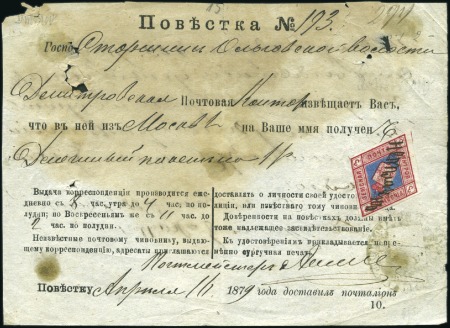 Повѣстка № 193.
Госпо Старшинѣ Ольговской волости
Дмитровская Почтовая Контора извѣщаетъ Васъ,
что въ ней изъ Москвы на Ваше имя полученъ
Денежный пакетъ
Выдача корреспонденціи производится еже-
дневно съ 8 час. утра до 4 час. по-
полудни; по Воскресеньямъ съ 11 час. до
2 час. по полудни.
Неизвѣстные почтовому чиновнику, выдаю-
щему корреспонденцію, адресаты приглашаются
доставлять о личности своей удосто-
или извѣстнаго тому чинов
Довѣренности на повѣсткахъ должны имѣть
тоже надлежащее засвидѣтельствованіе.
Къ удостовѣреніямъ прикладывается
сургучная печать.
Почтмейстеръ
Повѣстку Апрѣля 11 1879 года доставилъ почталіонъ
10.